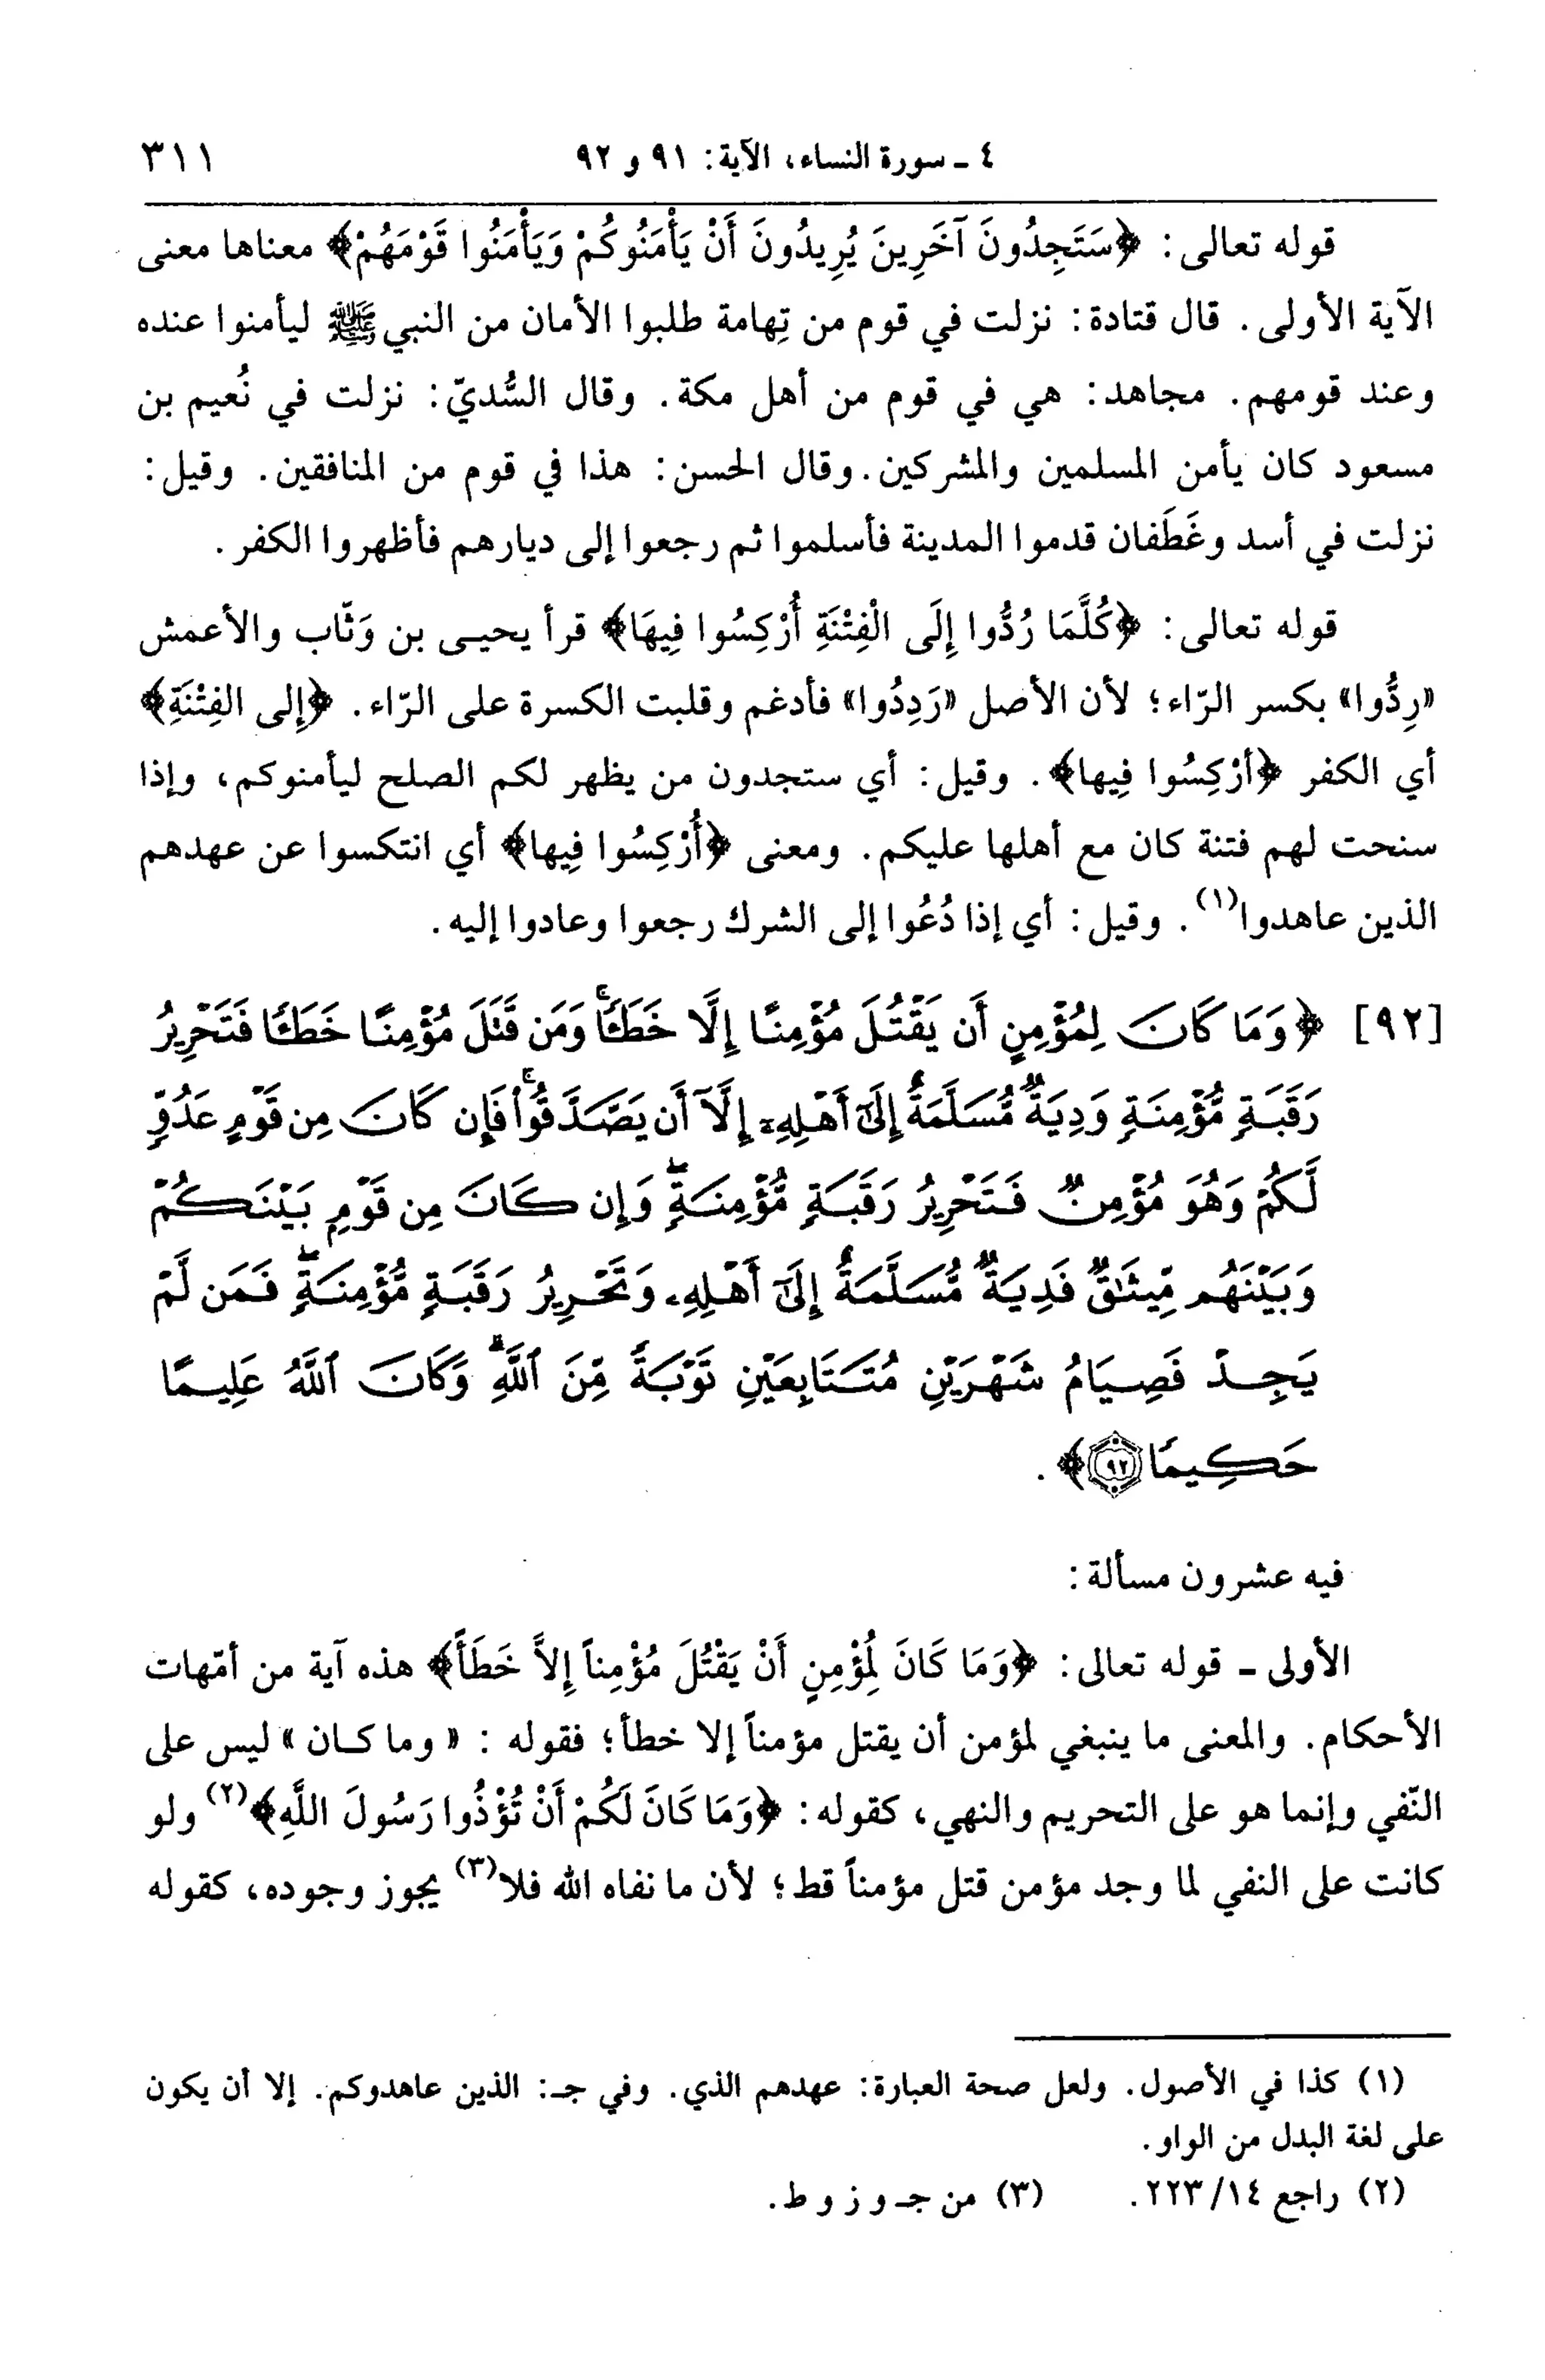 ٤ - سورة النساء، الآية: ٩١ و ٩٢ ٣١١
قوله تعالى: ﴿سَتَجِدُونَ آخَرِينَ يُرِيدُونَ أَنْ يَأْمَنُوكُمْ وَيَأْمَنُوا قَوْمَهُمْ﴾ معناها معنى
الآية الأولى. قال قتادة: نزلت في قوم من تِهامة طلبوا الأمان من النبي ﷺ ليأمنوا عنده
وعند قومهم. مجاهد: هي في قوم من أهل مكة. وقال السُّديّ: نزلت في نُعيم بن
مسعود كان يأمن المسلمين والمشركين. وقال الحسن: هذا في قوم من المنافقين. وقيل:
نزلت في أسد وغَطَفان قدموا المدينة فأسلموا ثم رجعوا إلى ديارهم فأظهروا الكفر.
قوله تعالى: ﴿كُلَّمَا رُدُّوا إِلَى الْفِتْنَةِ أُرْكِسُوا فِيهَا﴾ قرأ يحيـى بن وَثّاب والأعمش
«رِدُّوا» بكسر الرّاء؛ لأن الأصل «رَدِدُوا» فأدغم وقلبت الكسرة على الرّاء. ﴿إلى الفِتْنَةِ﴾
أي الكفر ﴿أرْكِسُوا فِيها﴾. وقيل: أي ستجدون من يظهر لكم الصلح ليأمنوكم، وإذا
سنحت لهم فتنة كان مع أهلها عليكم. ومعنى ﴿أُرْكِسُوا فِيها﴾ أي انتكسوا عن عهدهم
الذين عاهدوا(١). وقيل: أي إذا دُعُوا إلى الشرك رجعوا وعادوا إليه.
[٩٢] ﴿وَمَا كَانَ لِمُؤْمِنٍ أَن يَقْتُلَ مُؤْمِنًا إِلَّا خَطَـًٔاۚ وَمَن قَتَلَ مُؤْمِنًا خَطَـًٔا فَتَحْرِيرُ
رَقَبَةٍ مُّؤْمِنَةٍ وَدِيَةٌ مُّسَلَّمَةٌ إِلَىٰٓ أَهْلِهِۦٓ إِلَّآ أَن يَصَّدَّقُواْۚ فَإِن كَانَ مِن قَوْمٍ عَدُوٍّ
لَّكُمْ وَهُوَ مُؤْمِنٌ فَتَحْرِيرُ رَقَبَةٍ مُّؤْمِنَةٍۖ وَإِن كَانَ مِن قَوْمٍ بَيْنَكُمْ
وَبَيْنَهُم مِّيثَٰقٌ فَدِيَةٌ مُّسَلَّمَةٌ إِلَىٰٓ أَهْلِهِۦ وَتَحْرِيرُ رَقَبَةٍ مُّؤْمِنَةٍۖ فَمَن لَّمْ
يَجِدْ فَصِيَامُ شَهْرَيْنِ مُتَتَابِعَيْنِ تَوْبَةً مِّنَ ٱللَّهِۗ وَكَانَ ٱللَّهُ عَلِيمًا
حَكِيمًا ٩٢﴾.
فيه عشرون مسألة:
الأولى - قوله تعالى: ﴿وَمَا كَانَ لِمُؤْمِنٍ أَنْ يَقْتُلَ مُؤْمِناً إِلاَّ خَطَأً﴾ هذه آية من أمّهات
الأحكام. والمعنى ما ينبغي لمؤمن أن يقتل مؤمناً إلا خطأ؛ فقوله: «وما كـان» ليس على
النّفي وإنما هو على التحريم والنهي، كقوله: ﴿وَمَا كَانَ لَكُمْ أَنْ تُؤْذُوا رَسُولَ اللَّهِ﴾(٢) ولو
كانت على النفي لما وجد مؤمن قتل مؤمناً قط؛ لأن ما نفاه الله فلا(٣) يجوز وجوده، كقوله
(١) كذا في الأصول. ولعل صحة العبارة: عهدهم الذي. وفي جـ: الذين عاهدوكم. إلا أن يكون
على لغة البدل من الواو.
(٢) راجع ١٤/٢٢٣. (٣) من جـ و ز و ط.